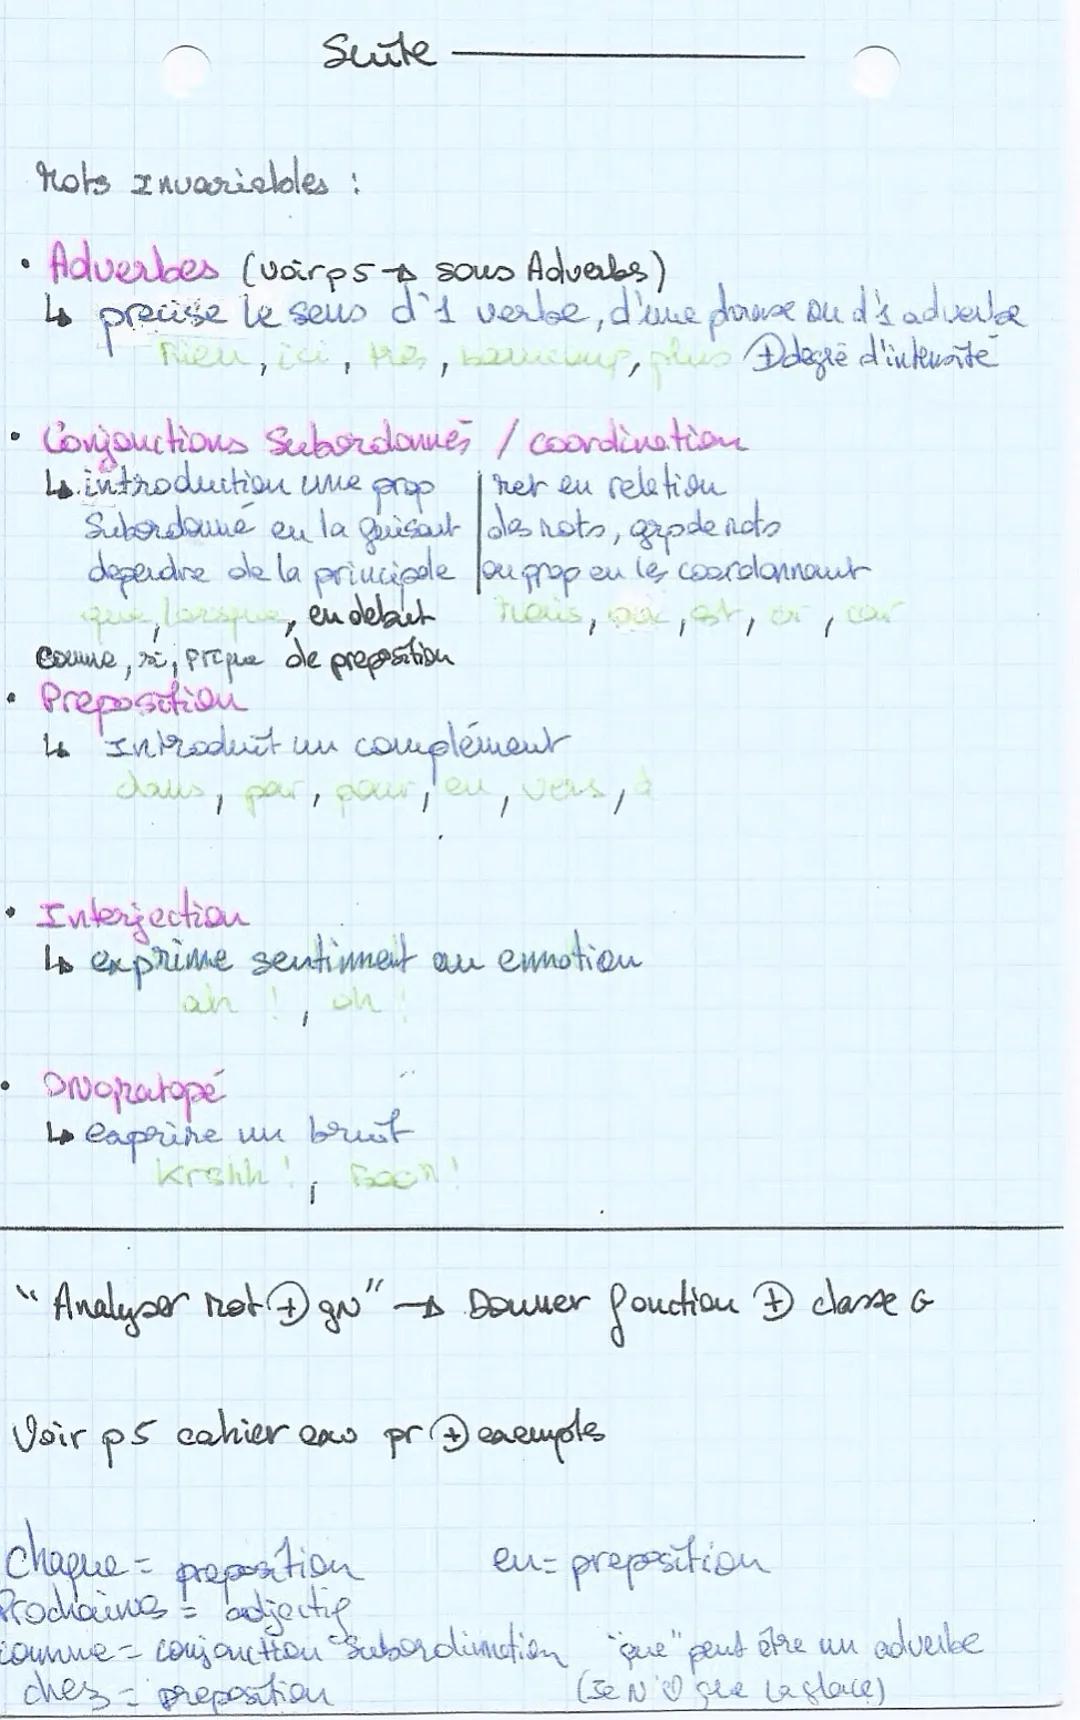 Suite
Mots Invariables :
• Adverbes (voir p5 → sous Adverbes)
↳ precise le sens d'1 verbe, d'une phrase ou d'1 adverbe
Rien, ici, très, beaucoup, plus ⊕ degré d'intensité
• Conjonctions Subordonnés / coordination
↳ introduction une prop | Met en relation
Subordonné en la faisant | des mots, grp de mots
dependre de la principale | ou prop en les coordonnant
que, lorsque, en debut mais, ou, et, or, car
comme, si, prsque de preposition
• Preposition
↳ Introduit un complément
dans, par, pour, en, vers, à
• Interjection
↳ exprime sentiment ou emmotion
ah !, oh !
• Onomatopé
↳ exprime un bruit
Krshh !, Boom !
"Analyser mot ⊕ gN" → Donner fonction ⊕ classe G
Voir p5 cahier exo pr ⊕ exemples
chaque = preposition en = preposition
Prochaines = adjectif
comme = conjonction Subordination "que" peut être un adverbe
chez = preposition (Je N'♡ que la glace)